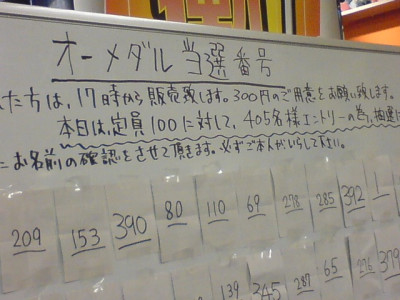 オーメダル当選番号
た方は、17時から販売致します。300円のご用意をお願い致します。
本日は、定員100に対して、405名様エントリーの為、抽選に
お名前の確認をさせて頂きます。必ずご本人がいらして下さい。
209 153 390 80 110 69 278 285 392 1
139 345 287 65 276 379